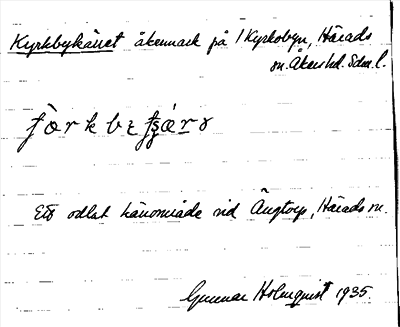 Kyrkbykärret åkermark på 1 Kyrkobyn, Härads
sn. Åkers hd. Sdm. l.
Ett odlat kärrområde vid Ängtorp, Härads sn.
Gunnar Holmquist 1935.